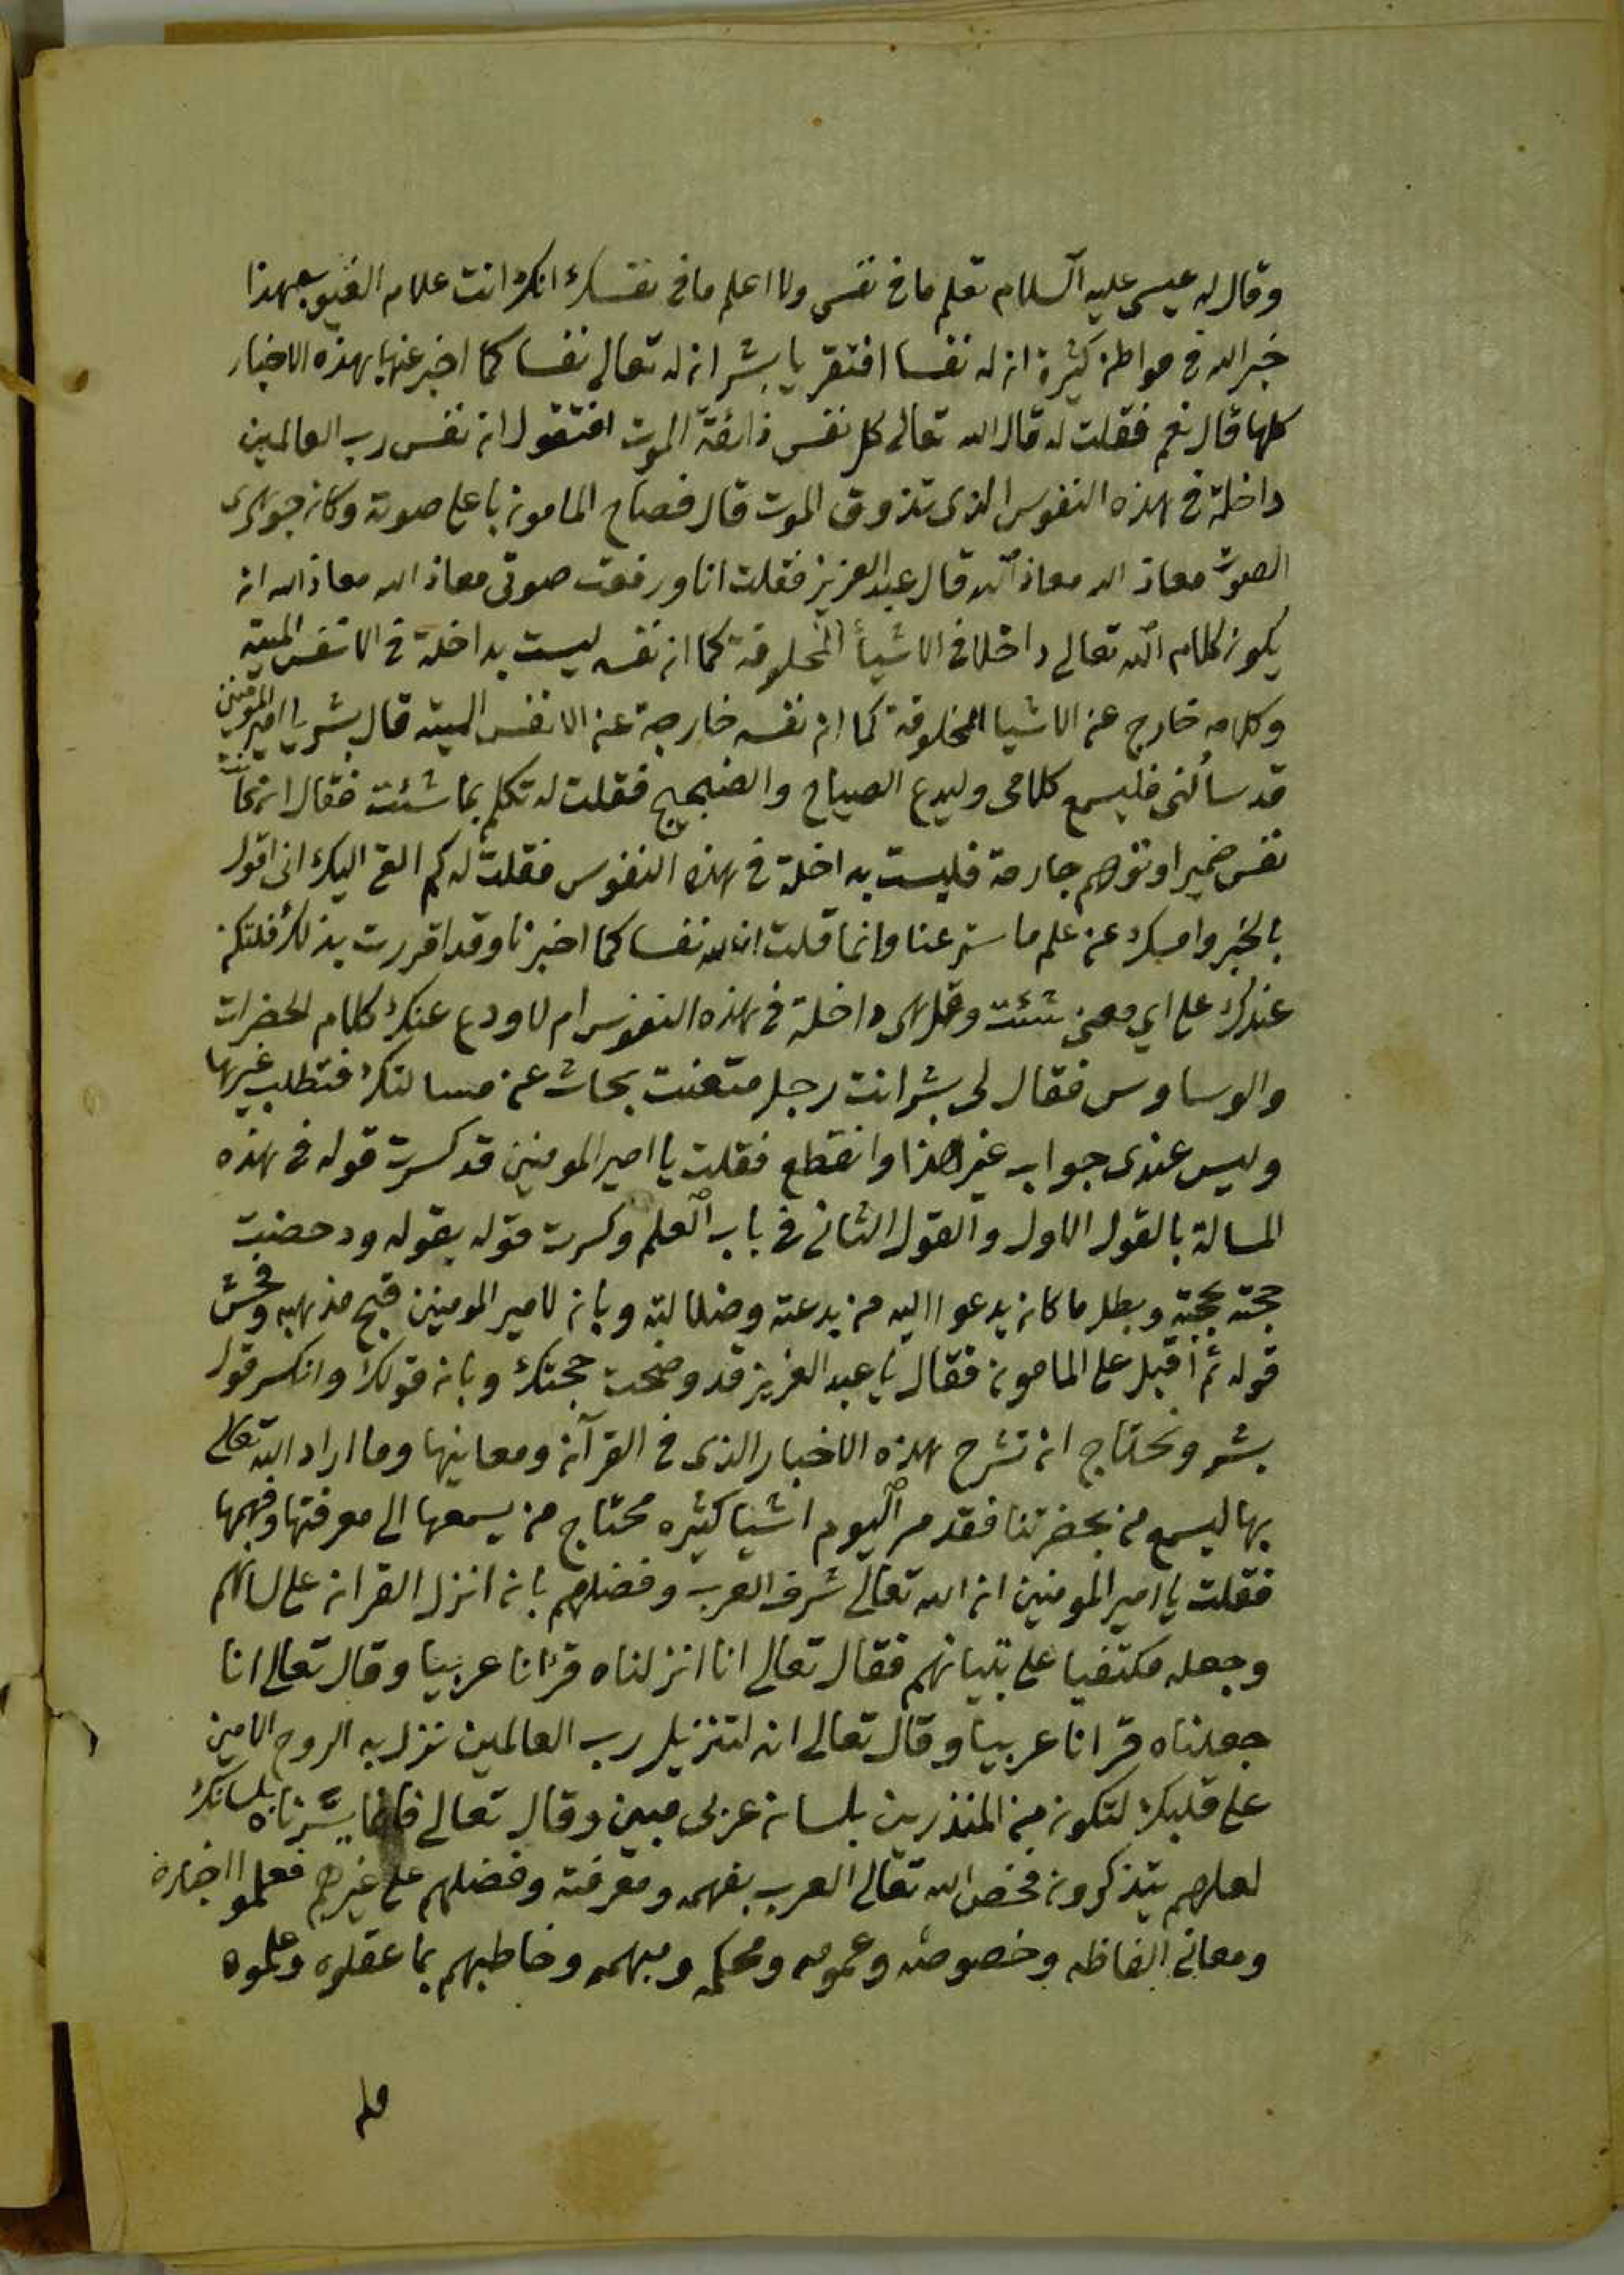 وقال له عيسى عليه السلام تعلم ما في نفسي ولا اعلم ما في نفسك انك انت علام الغيوب بهذا
خبر الله في مواطن كثيرة ان له نفسا افتقر يا بشر ان له تعالى نفسا كما اخبر عنها بهذه الاخبار
كلها قال نعم فقلت له قال الله تعالى كل نفس ذائقة الموت افتقول ان نفس رب العالمين
داخلة في هذه النفوس الذى تذوق الموت قال فصاح المامون باعلى صوته وكان جوهرى
الصوت معاذ الله معاذ الله قال عبد العزيز فقلت انا ورفعت صوتى معاذ الله معاذ الله ان
يكون كلام الله تعالى داخلا في الاشياء المخلوقة كما ان نفسه ليست بداخلة في الانفس الميتة
وكلامه خارج عن الاشيا المخلوقة كما ان نفسه خارجة عن الانفس الميته قال بشر يا امير المومنين
قد سألنى فليسمع كلامى وليدع الصياح والضجيج فقلت له تكلم بما شئت فقال ان كانت
نفس ضمير او توهم جارحة فليست بداخلة في هذه النفوس فقلت له كم القى اليك انى اقول
بالخبر وامسك عن علم ما ستر عنا وانما قلت ان لله نفسا كما اخبرنا وقد اقررت بذلك فلتكن
عندك على اي معنى شئت وهل هى داخلة في هذه النفوس ام لا ودع عنك كلام الخطرات
والوساوس فقال لى بشر انت رجل متعنت بحاث عن مسالتك فتطلب غيرها
وليس عندى جواب غير هذا وانقطع فقلت يا امير المومنين قد كسرت قوله في هذه
المسالة بالقول الاول والقول الثانى في باب العلم وكسرت قوله بقوله ودحضت
حجته بحجته وبطل ما كان يدعوا اليه من بدعته وضلالته وبان لامير المومنين قبح مذهبه وفحش
قوله ثم اقبل على المامون فقال يا عبد العزيز قد وضحت حجتك وبان قولك وانكسر قول
بشر ونحتاج ان تشرح هذه الاخبار الذى في القرآن ومعانيها وما اراد الله تعالى
بها ليسمع من بحضرتنا فقد مر اليوم اشيا كثيره محتاج من يسمعها الى معرفتها وفهمها
فقلت يا امير المومنين ان الله تعالى شرف العرب وفضلهم بان انزل القران على لسانهم
وجعله مكتفيا على تبيانهم فقال تعالى انا انزلناه قرانا عربيا وقال تعالى انا
جعلناه قرانا عربيا وقال تعالى انه لتنزيل رب العالمين نزل به الروح الامين
على قلبك لتكون من المنذرين بلسان عربى مبين وقال تعالى فانما يسرناه بلسانك
لعلهم يتذكرون فخص الله تعالى العرب بفهمه ومعرفته وفضلهم على غيرهم فعلموا اخباره
ومعانى الفاظه وخصوصه وعمومه ومحكمه ومبهمه وخاطبهم بما عقلوه وعلموه